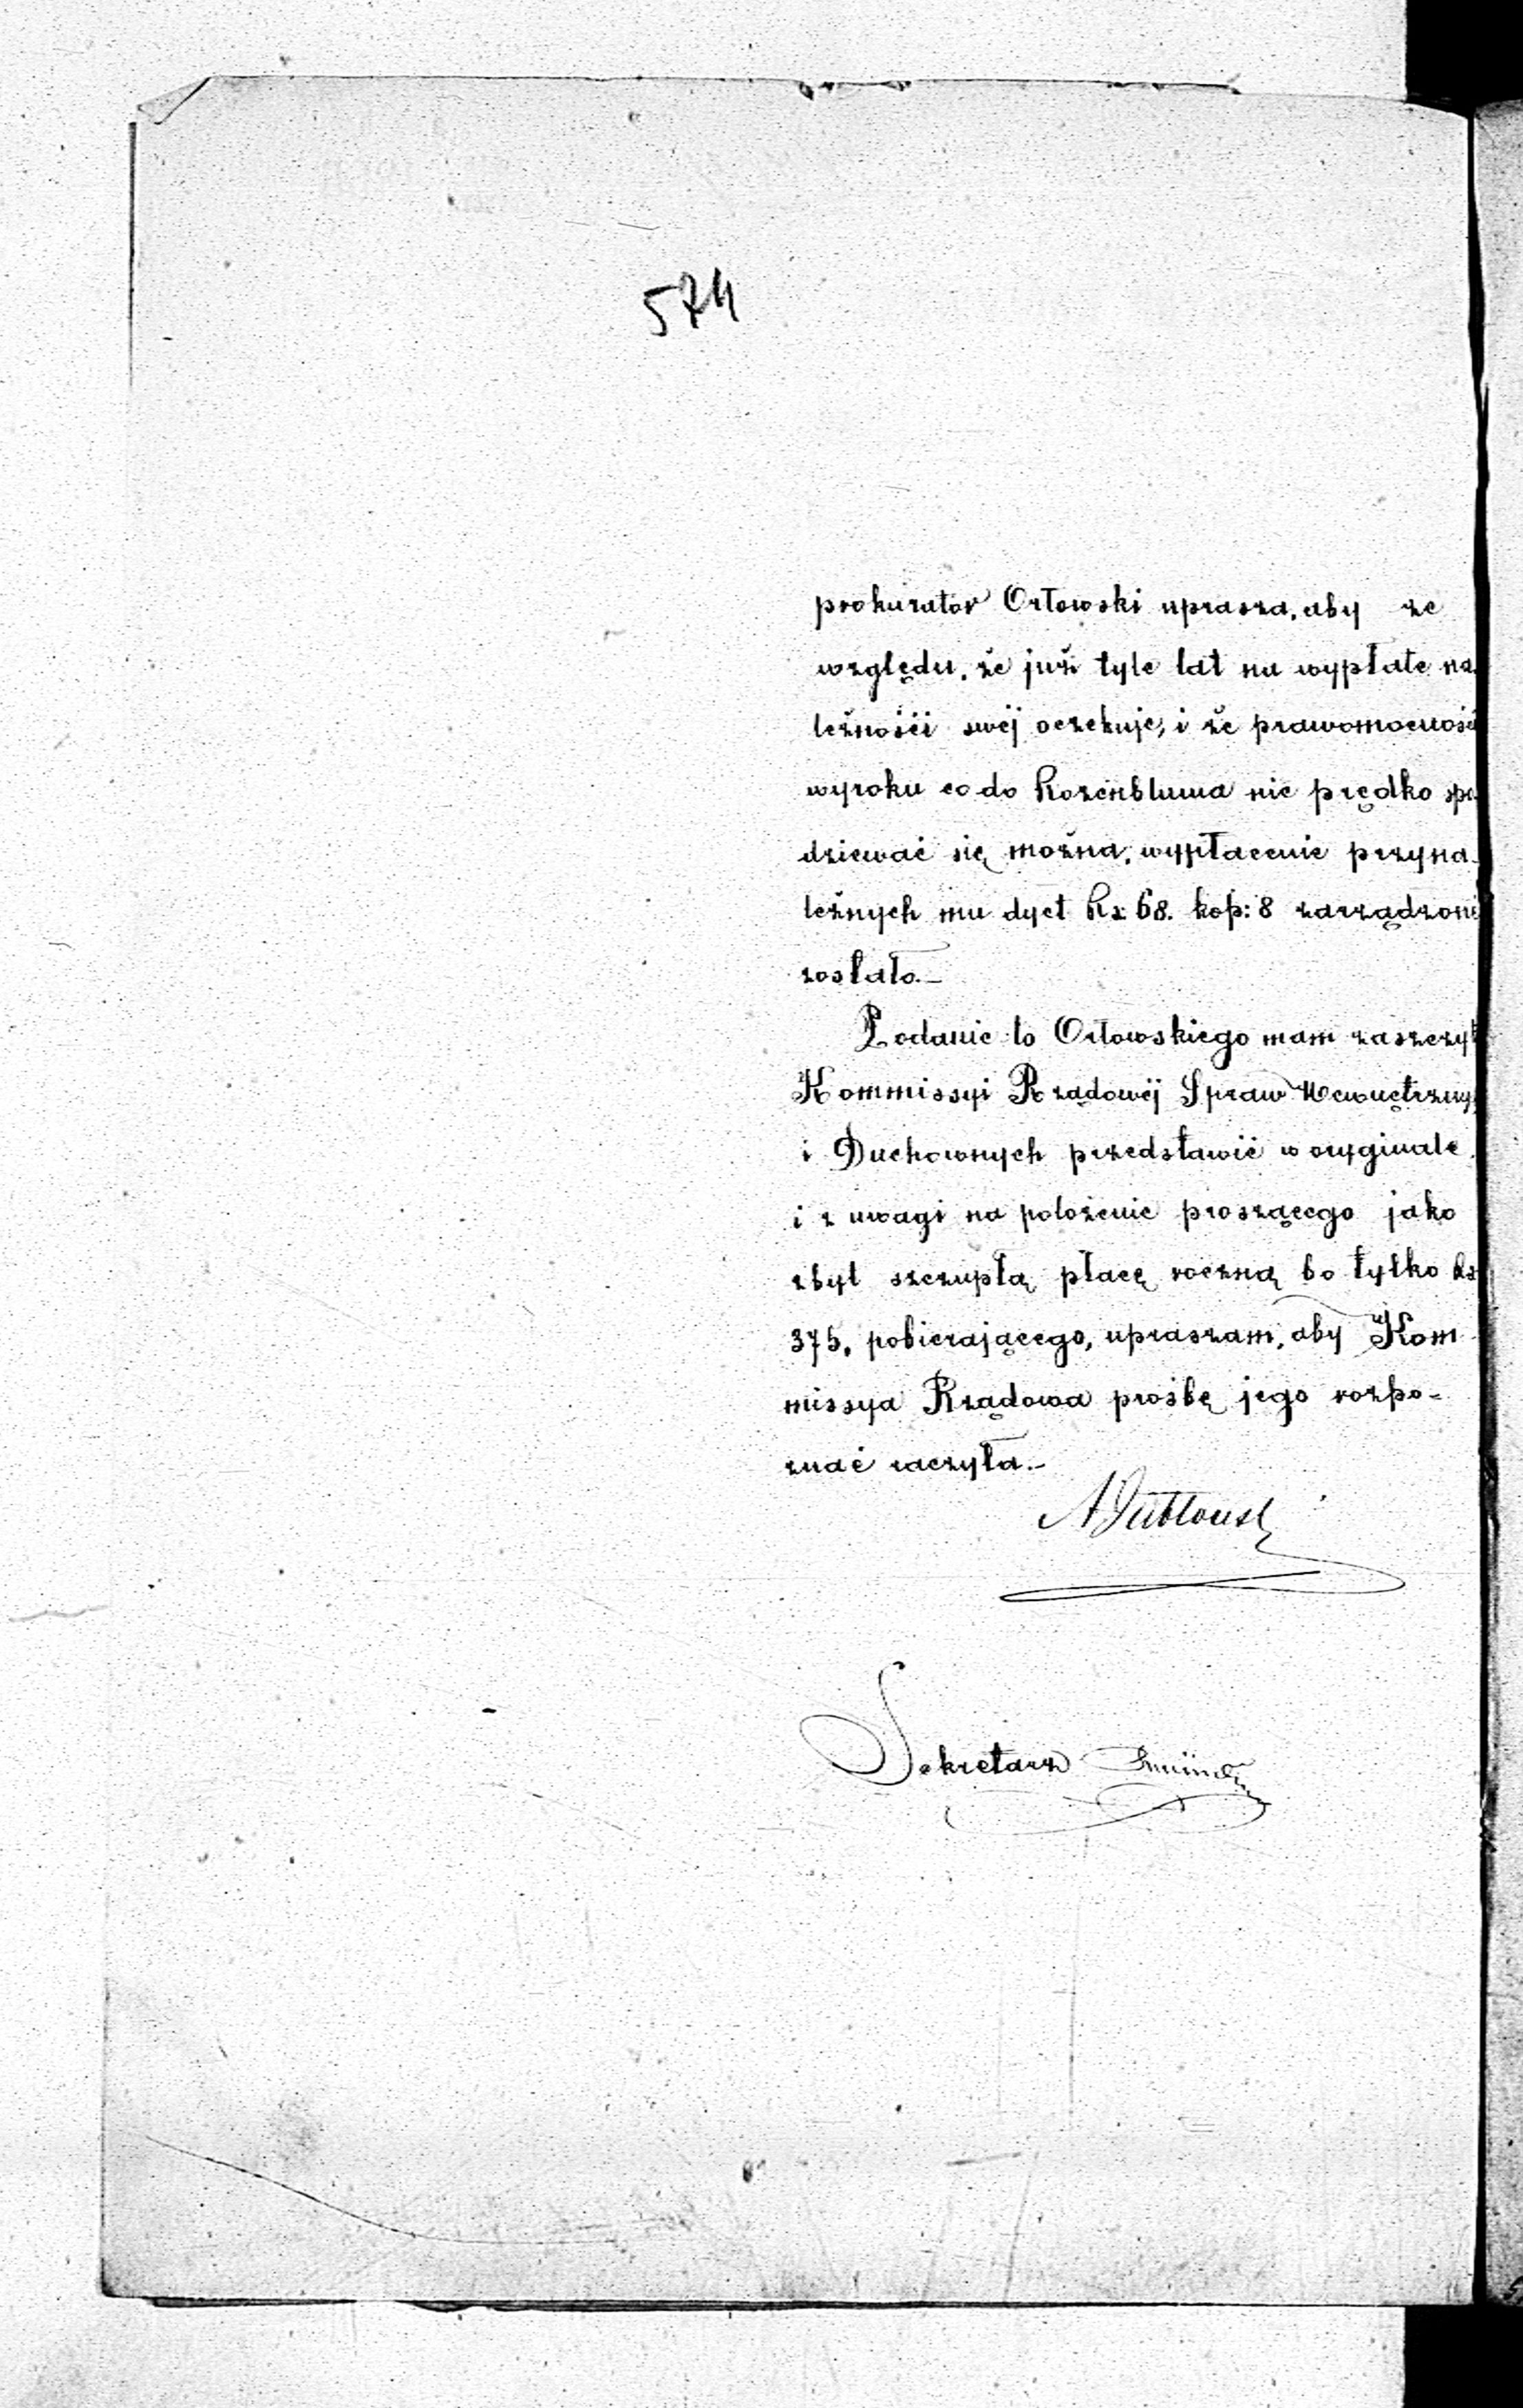 574
prokurator Orłowski uprasza, aby ze
względu, że już tyle lat na wypłatę na
leżności swéj oczekuje, i że prawomocność
wyroku co do Rozenbluma nie prędko spo
dziewać się można, wypłacenie przyna-
leżnych mu dyet Rs 68. kop: 8 zarządzone
zostało.-
Podanie to Orłowskiego mam zaszczyt
Kommissyi Rządowéj Spraw Wewnętrzny
i Duchownych przedstawić w oryginale
i z uwagi na położenie proszącego jako
zbyt szczupłą płacę roczną bo tylko Rs
375, pobierającego, upraszam, aby Kom
missya Rządowa prośbę jego rozpo-
znać raczyła.-
Sekretarz